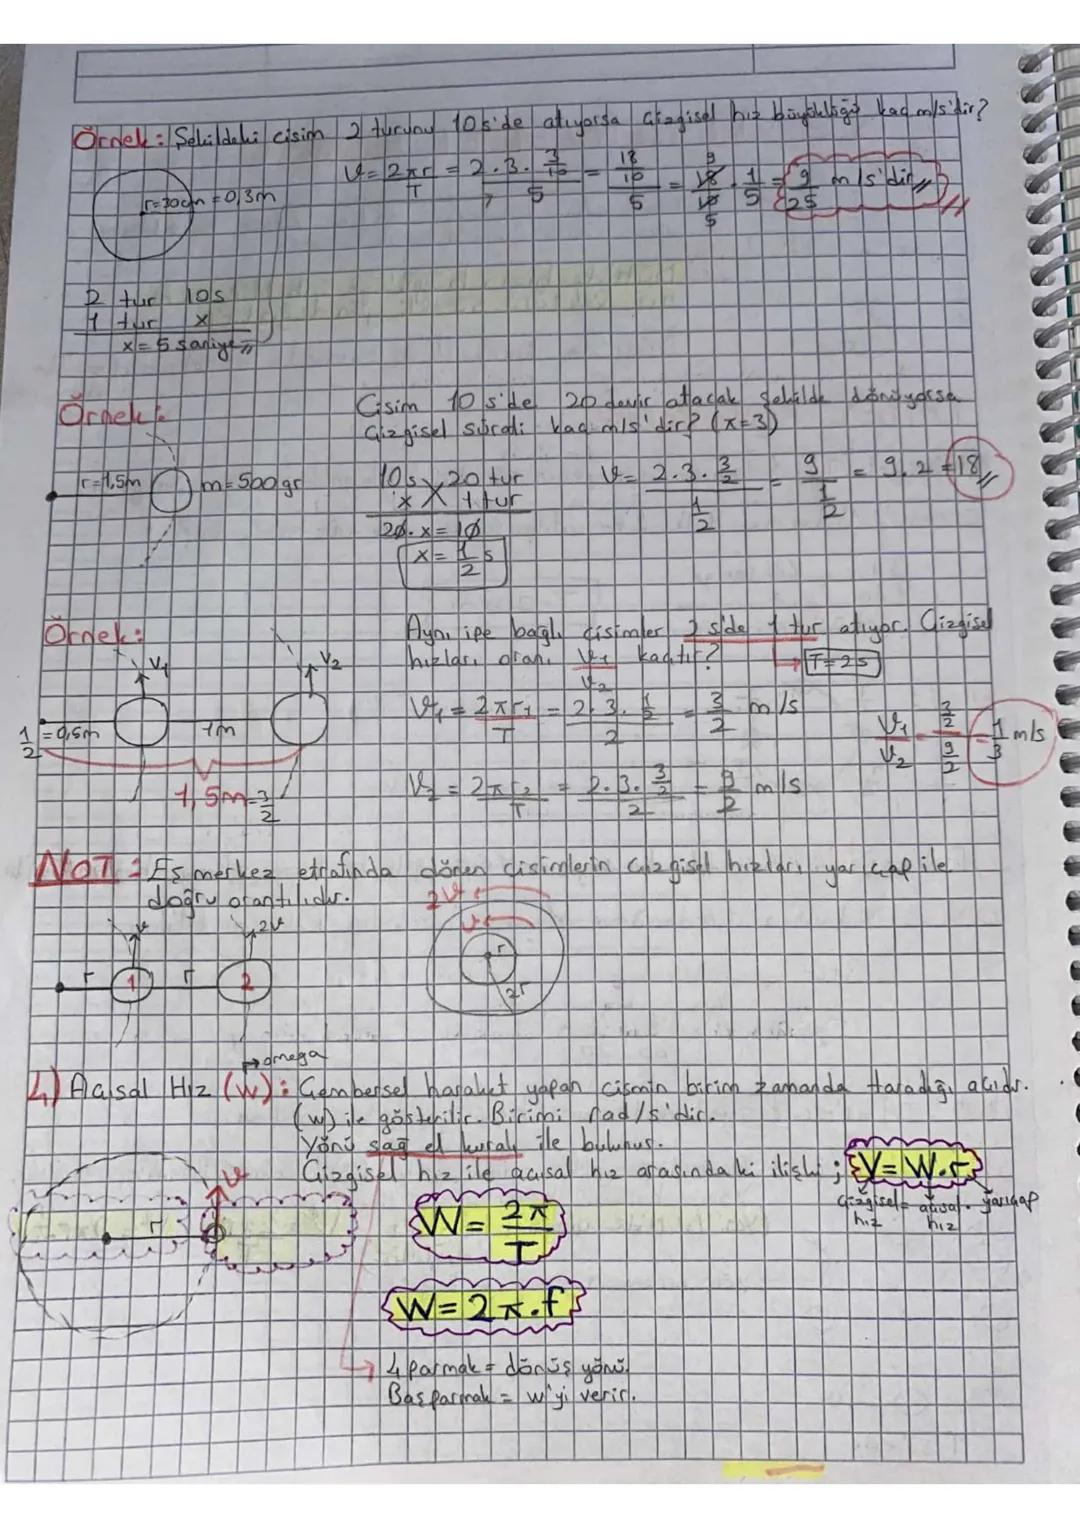 Örnek: Şekildeki cisim 2 turunu 10s'de atıyorsa Çizgisel hız büyüklüğü kaç m/s'dir?
r=30cm=0,3m
V=2πr/T = 2.3.3/10/5 = 18/10/5 = 18/10.1/5 = 9/25 m/s'dir
2 tur 10s
1 tur x
x=5 saniye
Örnek:
Cisim 10 s'de 20 devir atacak şekilde dönüyorsa
Çizgisel sürati kaç m/s'dir? (π=3)
r=1,5m
m=500gr
10s 20 tur
x 1 tur
20.x=10
x=1/2 s
V=2.3.3/2/1/2 = 9/1/2 = 9.2=18
Örnek:
Aynı ipe bağlı cisimler 2 s'de 1 tur atıyor. Çizgisel
hızları oranı V1/V2 kaçtır?
T=2s
V1
V2
1/2=0,5m
1m
1,5m=3/2
V1=2πr1/T = 2.3.1/2/2 = 3/2 m/s
V2=2πr2/T = 2.3.3/2/2 = 9/2 m/s
V1/V2=3/2/9/2=1/3 m/s
NOT: Eş merkez etrafında dönen cisimlerin çizgisel hızları yarıçap ile
doğru orantılıdır.
r 1 v r 2 2v
2v
v
r
2r
omega
4) Açısal Hız (W): Çembersel hareket yapan cismin birim zamanda taradığı açıdır.
(w) ile gösterilir. Birimi rad/s'dir.
Yönü sağ el kuralı ile bulunur.
Çizgisel hız ile açısal hız arasındaki ilişki; V=W.r
Çizgisel hız = açısal hız . yarıçap
r
v
W=2π/T
W=2π.f
4 parmak = dönüş yönü.
Başparmak = w'yi verir.